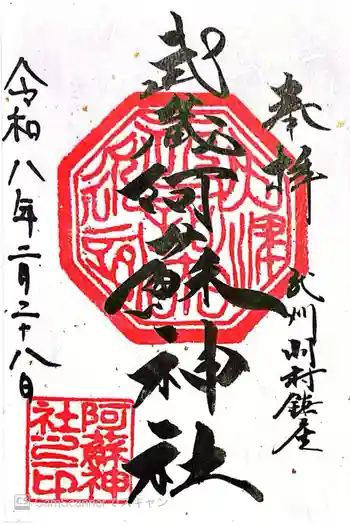 奉拝
武州川村鎮座
武蔵阿蘇神社
令和八年二月二十八日
阿蘇神
社之印
CamScanner でスキャン